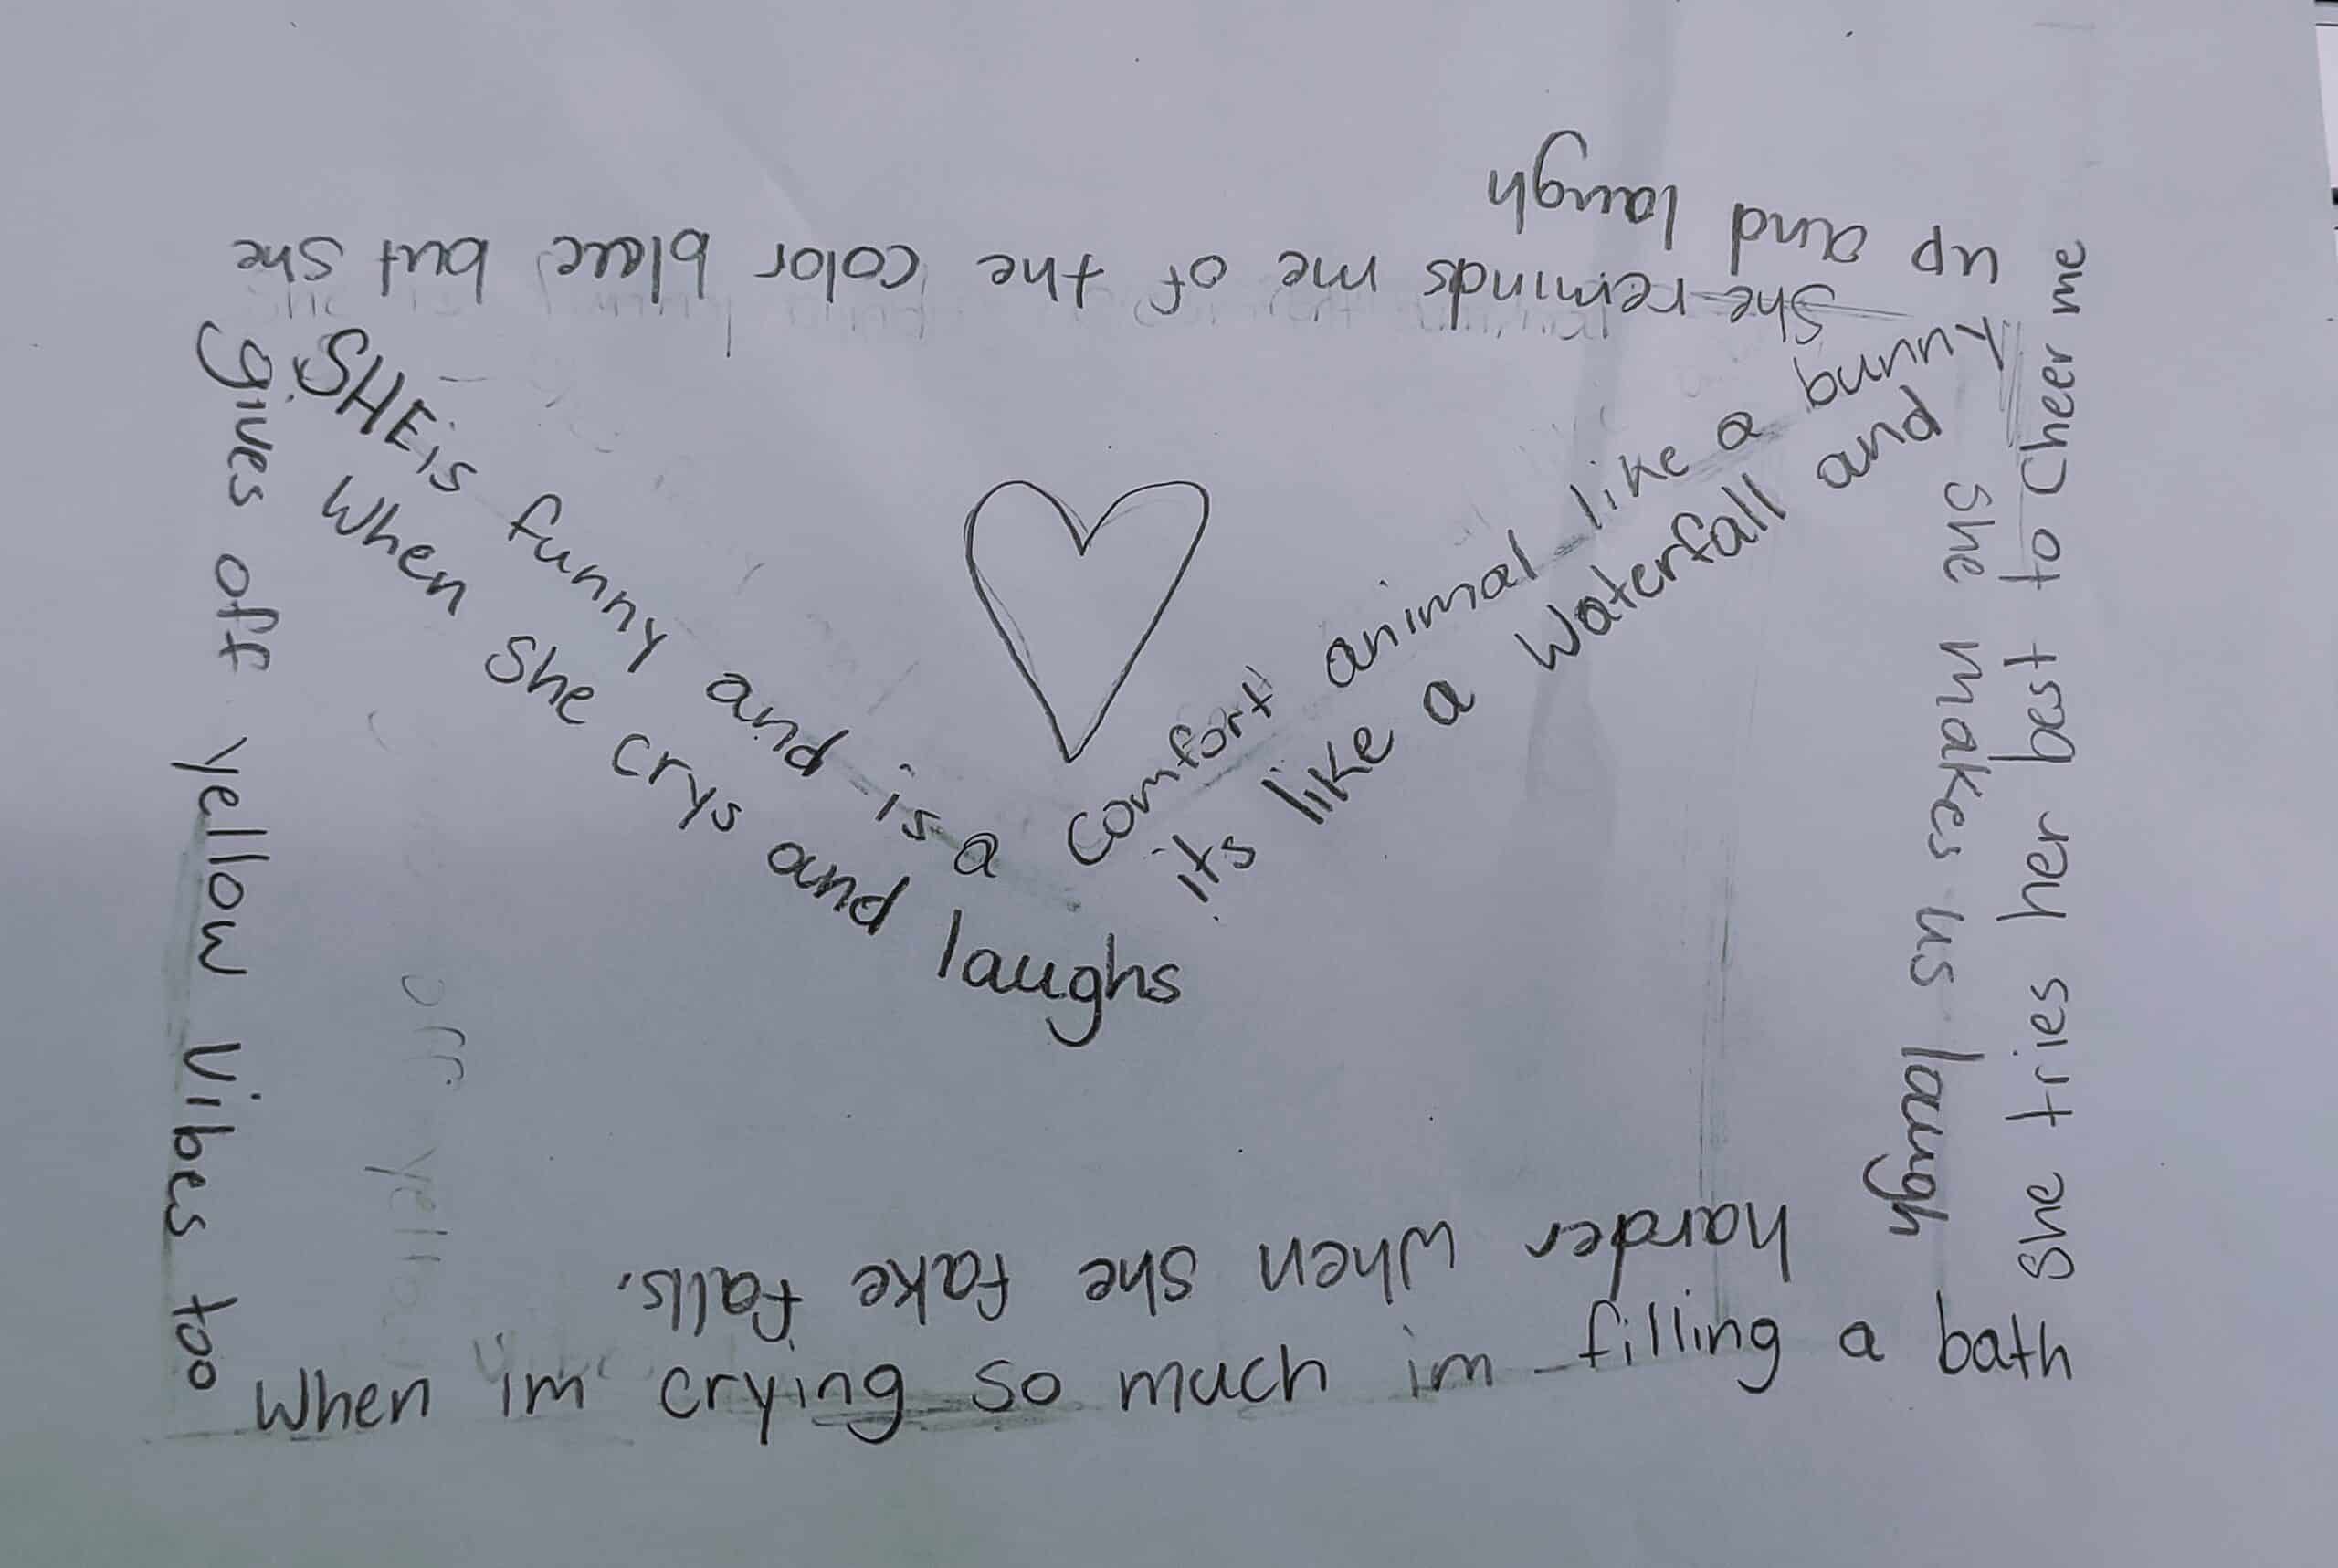 SHE is funny and is a
comfort animal like a bunny
She reminds me of the color blue but she
gives off yellow vibes too
When im crying so much im filling a bath
She tries her best to Cheer me
up and laugh
When she crys and laughs
its like a Waterfall and
she makes us laugh
harder when she fake falls.